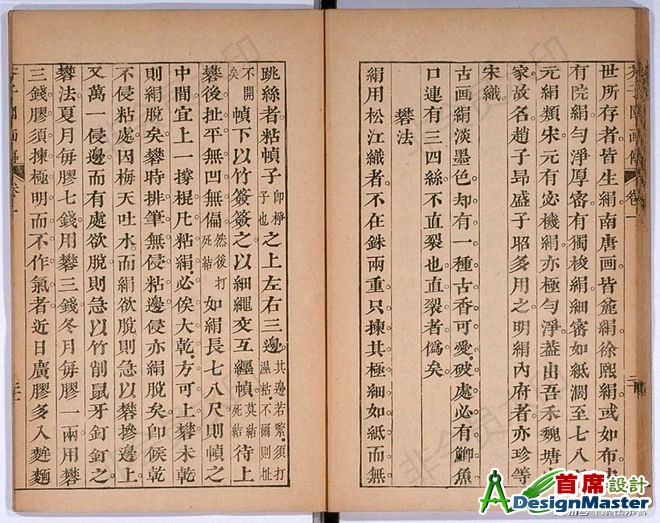 芥子園画傳 卷一
世所存者皆生絹南唐画皆麄絹徐熙絹或如布
有院絹勻淨厚密有獨梭絹細密如紙濶至七八
元絹類宋元有宓機絹亦極勻淨葢出吾禾魏塘
家故名趙子昂盛子昭多用之明絹內府者亦珍等
宋織
古画絹淡墨色却有一種古香可愛破處必有鯽魚
口連有三四絲不直裂也直裂者僞矣
礬法
絹用松江織者不在銖兩重只揀其極細如紙而無
跳絲者粘幀子即棦子也之上左右三邊其邊若緊須打濕粘不爾則扯
不開矣幀下以竹簽簽之以細繩交互纏幀莫結死結待上
礬後扯平無凹無偏然後打死結如絹長七八尺則幀之
中間宜上一撐棍凡粘絹必俟大乾方可上礬未乾
則絹脫矣礬時排筆無侵粘邊侵亦絹脫矣即候乾
不侵粘處因梅天吐水而絹欲脫則急以礬摻邊上
又萬一侵邊而有處欲脫則急以竹削鼠牙釘釘之
礬法夏月每膠七錢用礬三錢冬月每膠一兩用礬
三錢膠須揀極明而不作氣者近日廣膠多入麪麵
首席設計
ADesignMaster